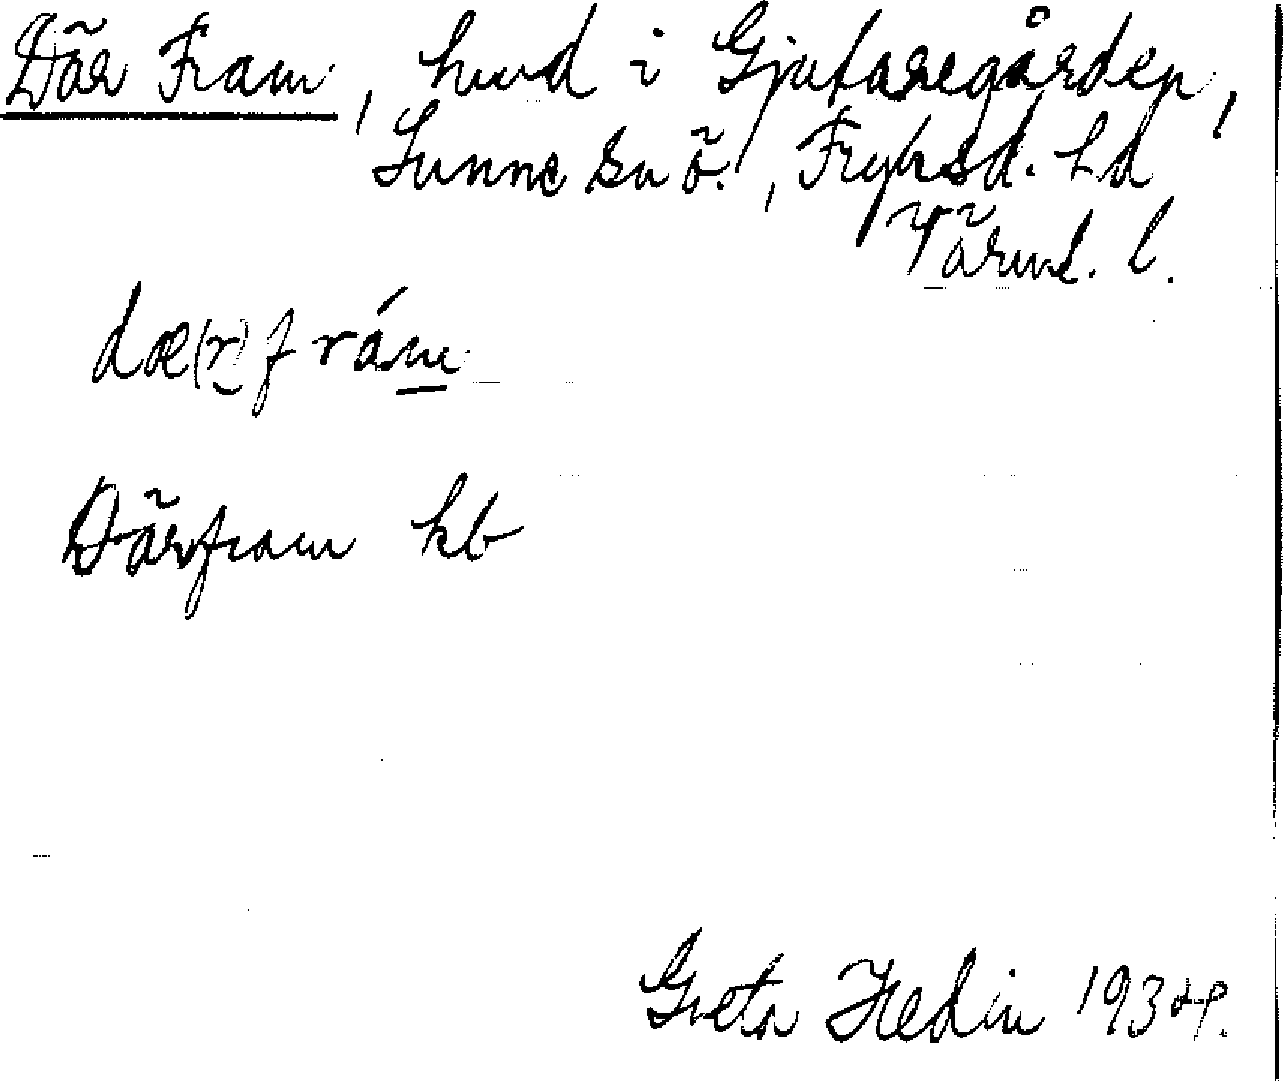 Där Fram, hmd i Gjutaregården,
Sunne sn ö., Fryksd. hd
Värml. l.
dæ(r)fram
Därfram kb
Greta Hedin 1934.